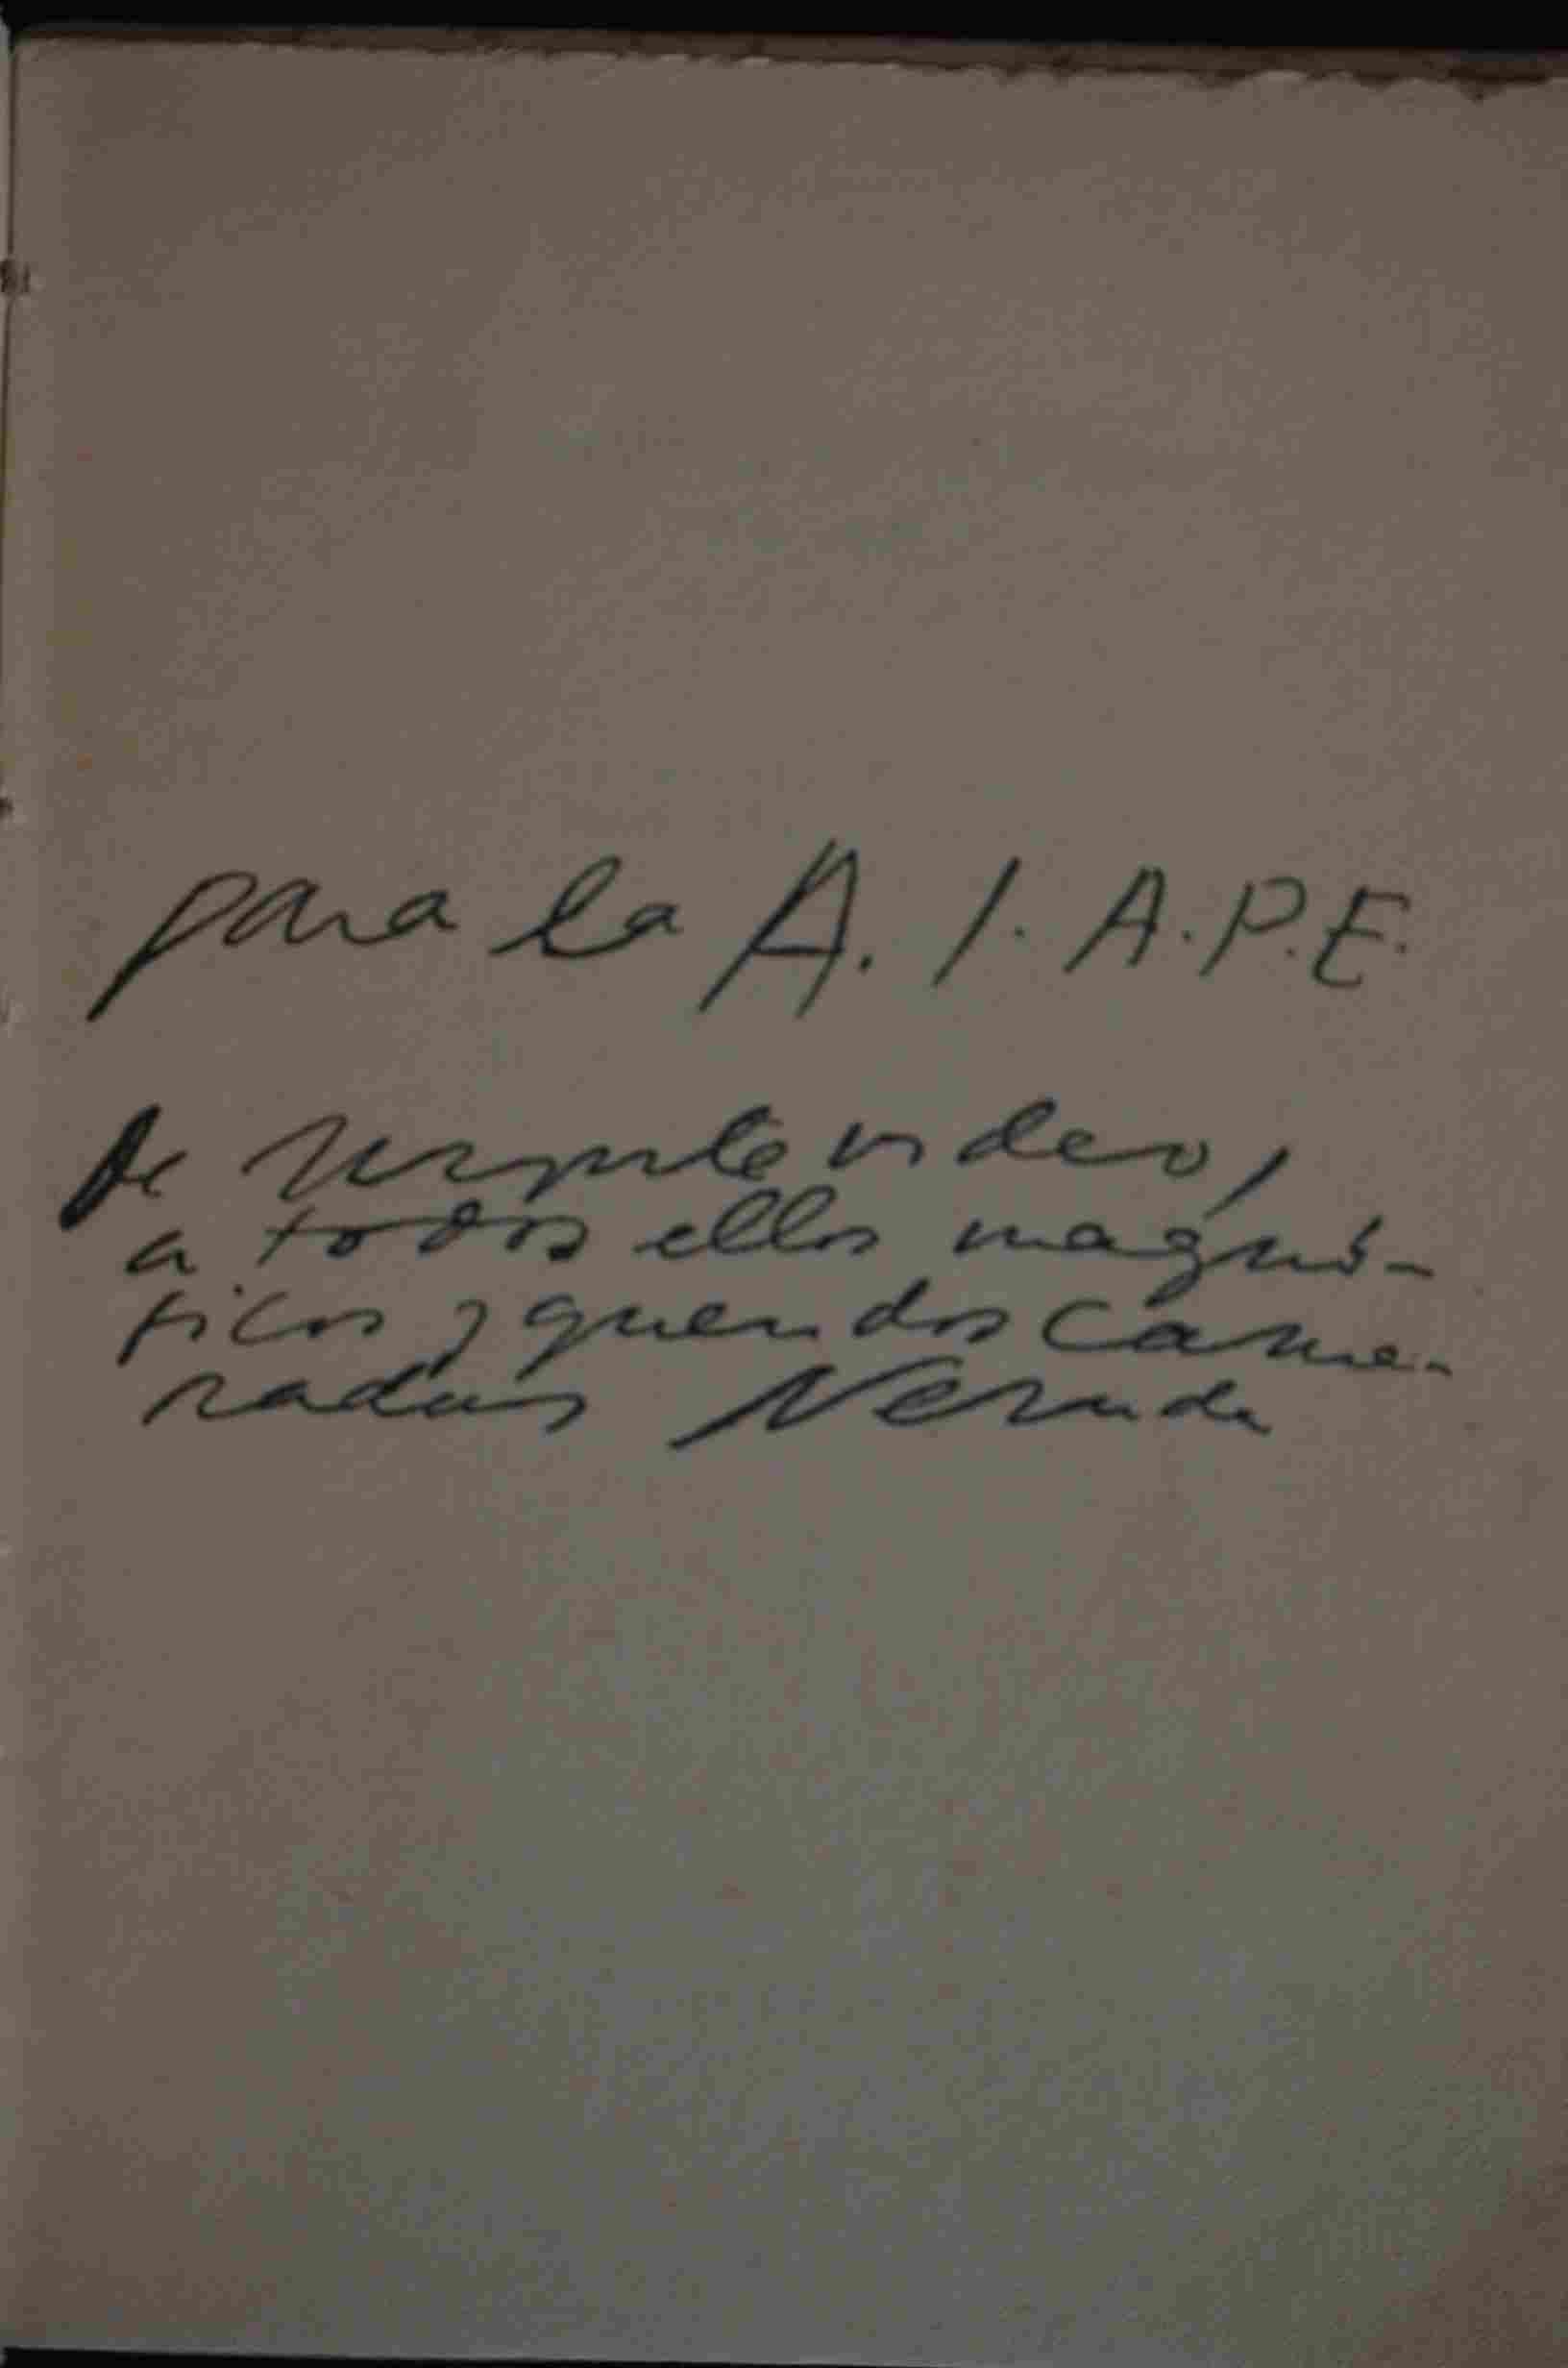 para la A. I. A.P.E.
de Montevideo,
a todos ellos magné-
ticos y queridos cama-
radas Neruda